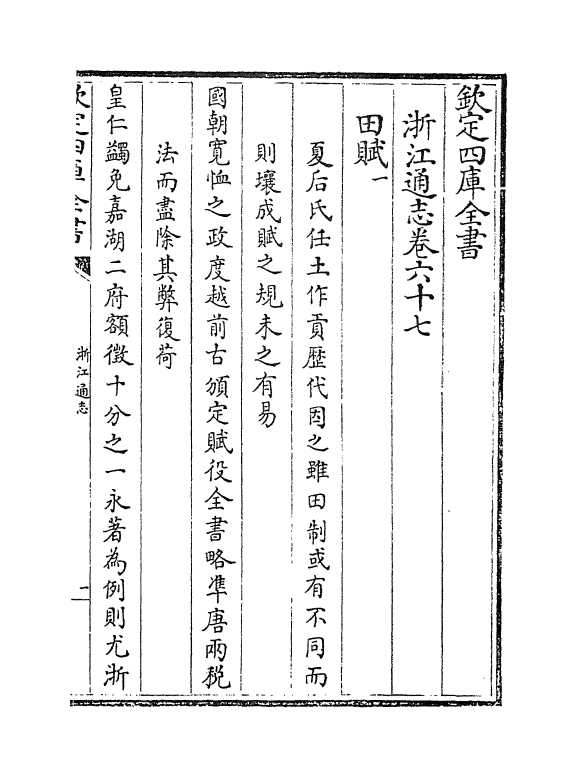 欽定四庫全書
浙江通志卷六十七
田賦一
夏后氏任土作貢歴代因之雖田制或有不同而
則壤成賦之規未之有易
國朝寛恤之政度越前古頒定賦役全書略凖唐兩税
法而盡除其弊復荷
皇仁蠲免嘉湖二府額徵十分之一永著為例則尤浙
欽定四庫全書
浙江通志
一